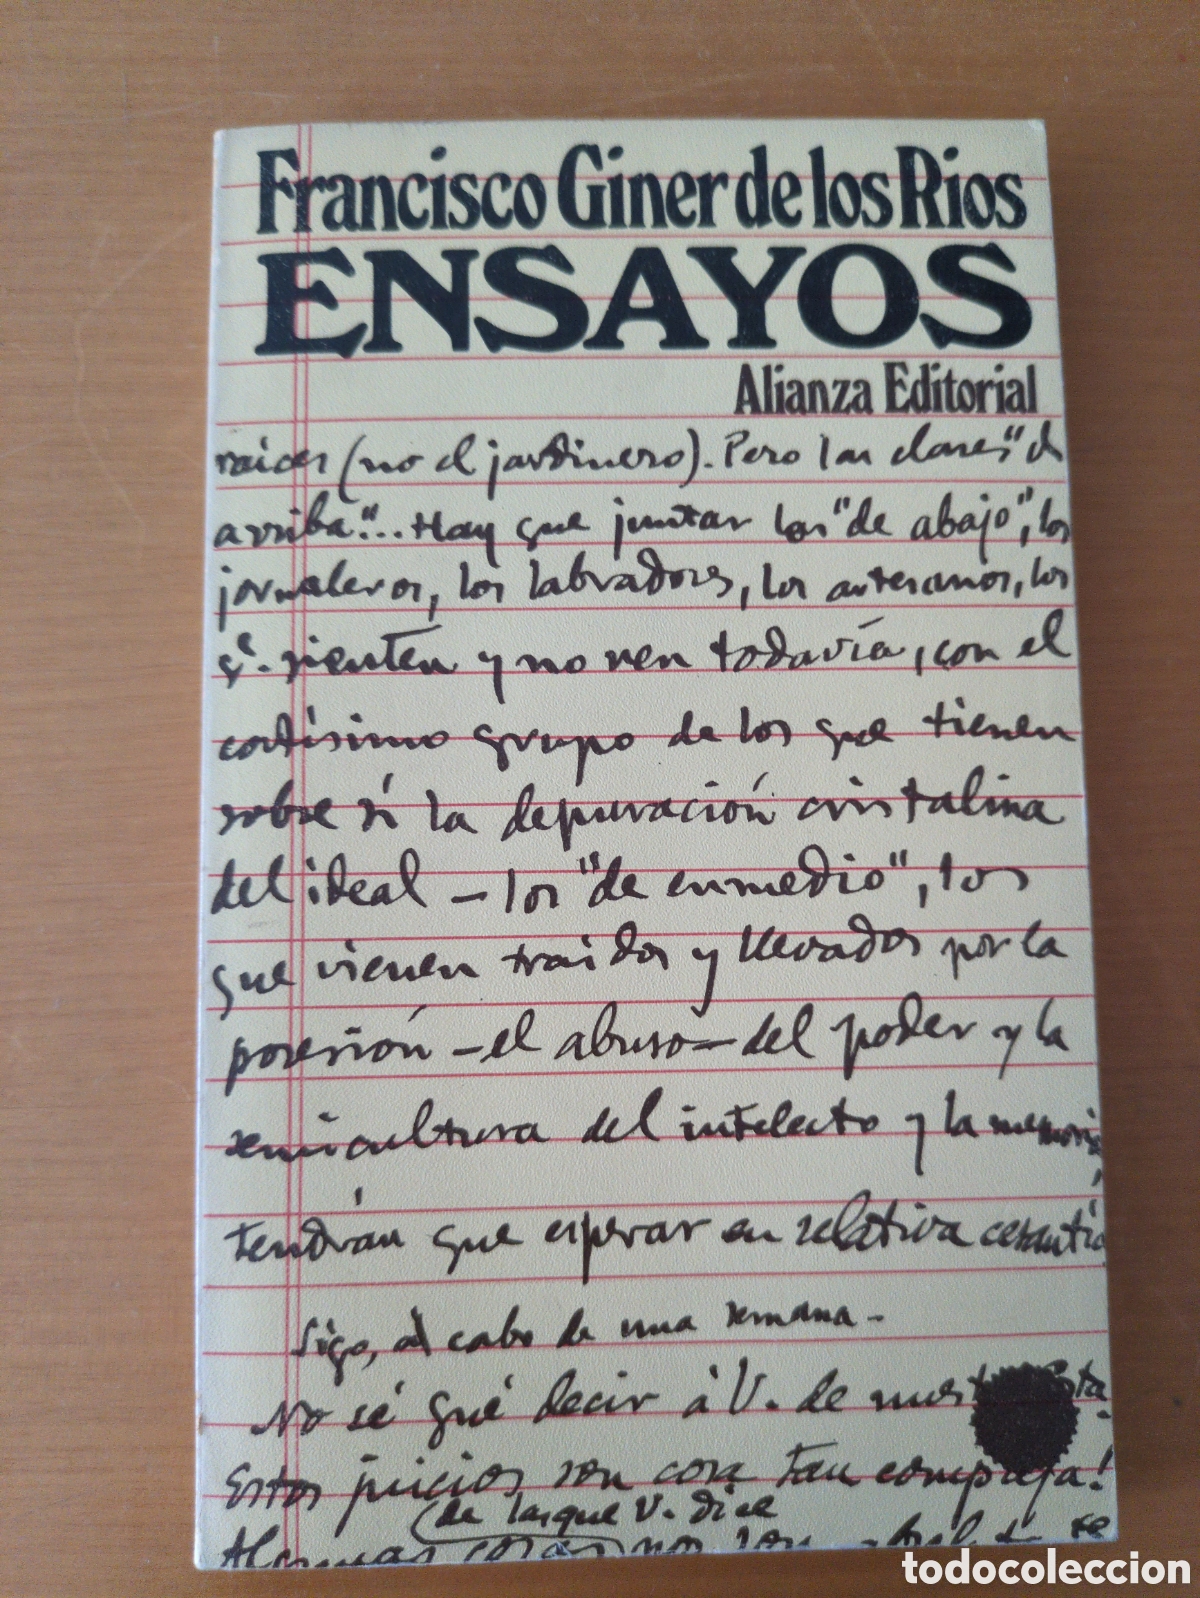 Francisco Giner de los Rios
ENSAYOS
Alianza Editorial
raíces (no el jardinero). Pero las clases "de
arriba"... Hay que juntar los "de abajo", los
jornaleros, los labradores, los artesanos, los
q.e sienten y no ven todavía, con el
cortísimo grupo de los que tienen
sobre sí la depuración cristalina
del ideal – los "de enmedio", los
que vienen traidos y llevados por la
posesión – el abuso – del poder y la
semicultura del intelecto y la memoria,
tendrán que esperar en relativa cesantía
Sigo, al cabo de una semana.–
No sé qué decir á V. de
Estos juicios son cosa tan compleja!
de las que V. dice
Algunas cosas nos son
todocoleccion